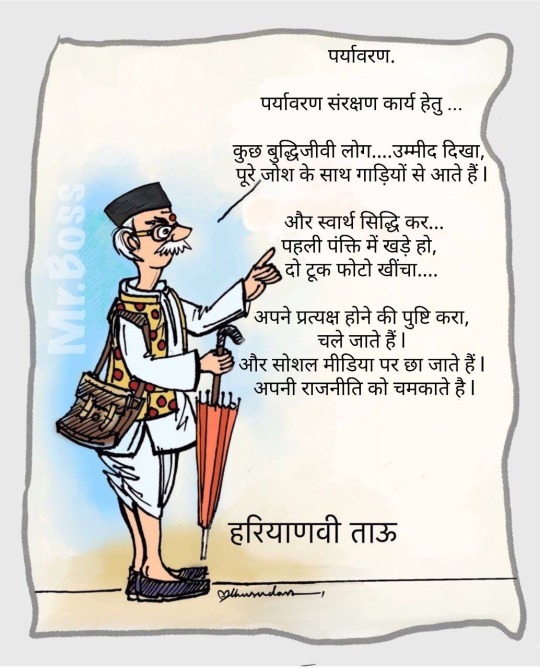 पर्यावरण.
पर्यावरण संरक्षण कार्य हेतु ...
कुछ बुद्धिजीवी लोग....उम्मीद दिखा,
पूरे जोश के साथ गाड़ियों से आते हैं l
और स्वार्थ सिद्धि कर...
पहली पंक्ति में खड़े हो,
दो टूक फोटो खींचा....
अपने प्रत्यक्ष होने की पुष्टि करा,
चले जाते हैं l
और सोशल मीडिया पर छा जाते हैं l
अपनी राजनीति को चमकाते है l
Mr.Boss
हरियाणवी ताऊ